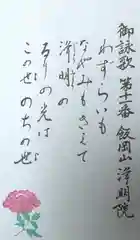 御詠歌 第十一番 飯岡山 浄明院
わずらいも
なやみもきえて
浄明の
るりの光は
このせのちの世